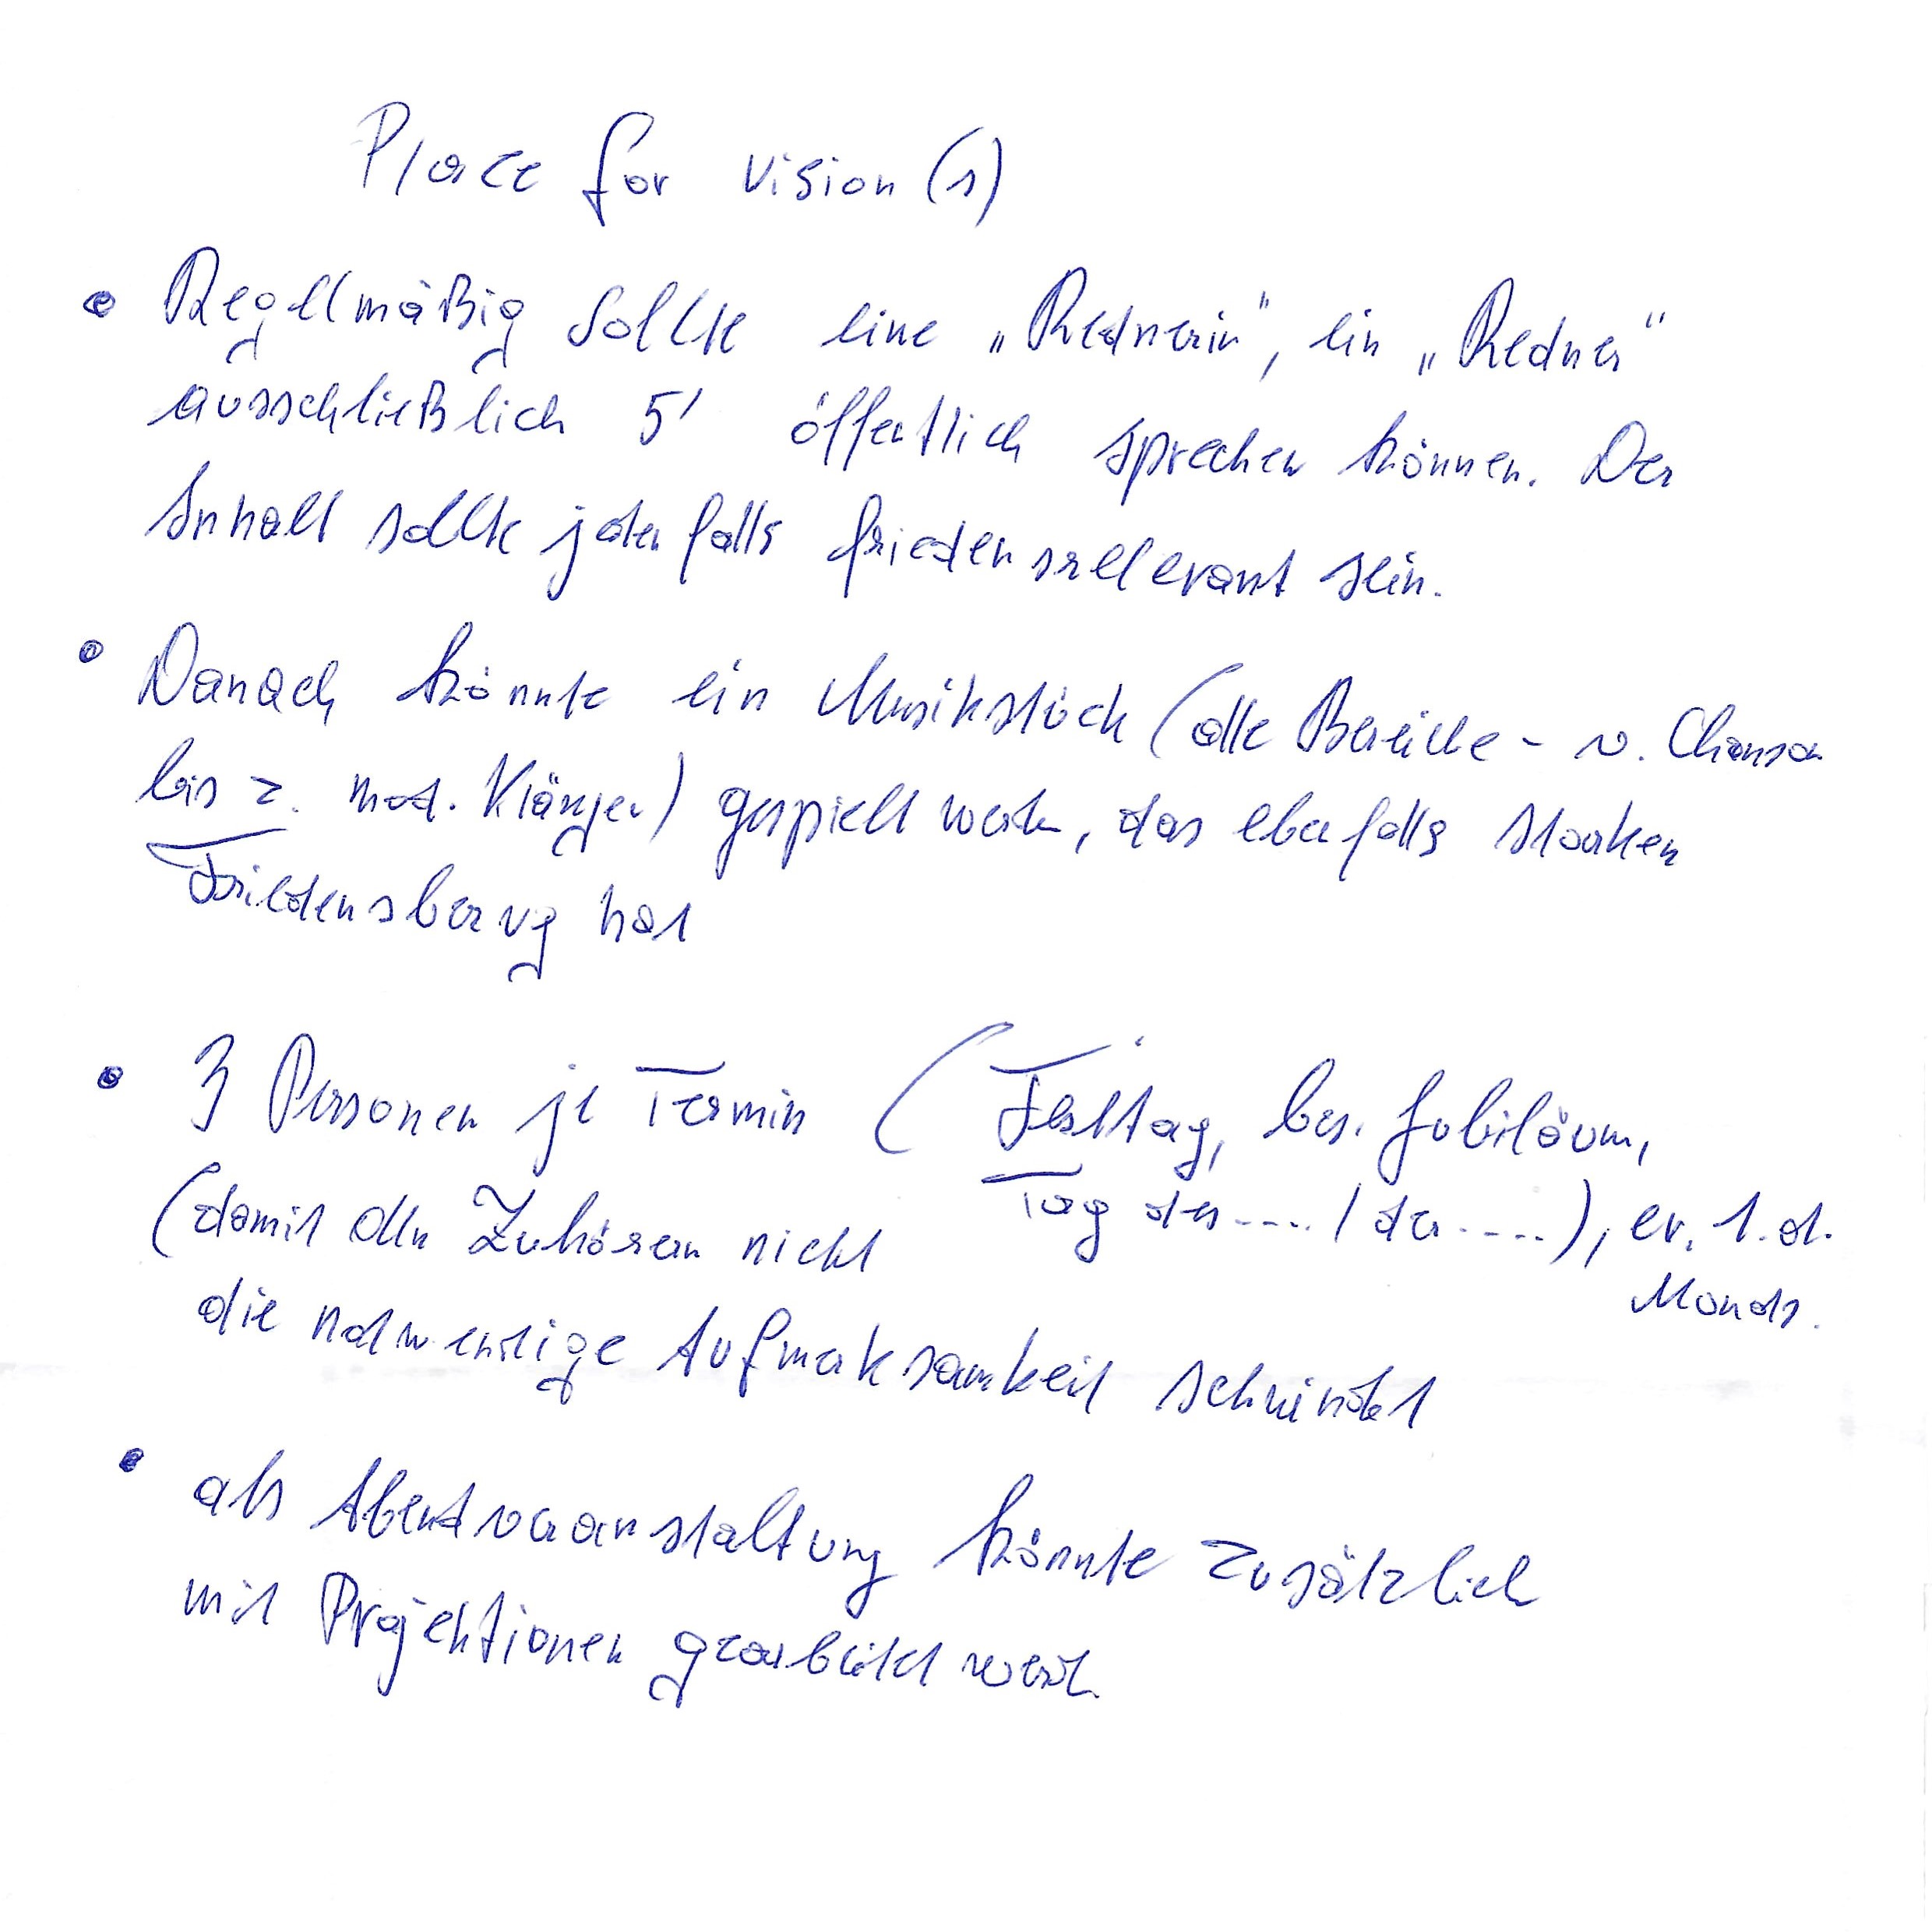 Place for vision(s)
• Regelmäßig sollte eine „Rednerin", ein „Redner"
ausschließlich 5' öffentlich sprechen können. Der
Inhalt sollte jedenfalls friedensrelevant sein.
• Danach könnte ein Musikstück (alle Bereiche - v. Chanson
bis z. mod. Klängen) gespielt werden, das ebenfalls starken
Friedensbezug hat
• 3 Personen je Termin (Festtag, bes. Jubiläum,
Tag des .... / der ....), ev. 1. d.
Monats.
(damit den Zuhörern nicht
die notwendige Aufmerksamkeit schwindet
• als Abendveranstaltung könnte zusätzlich
mit Projektionen gearbeitet werden